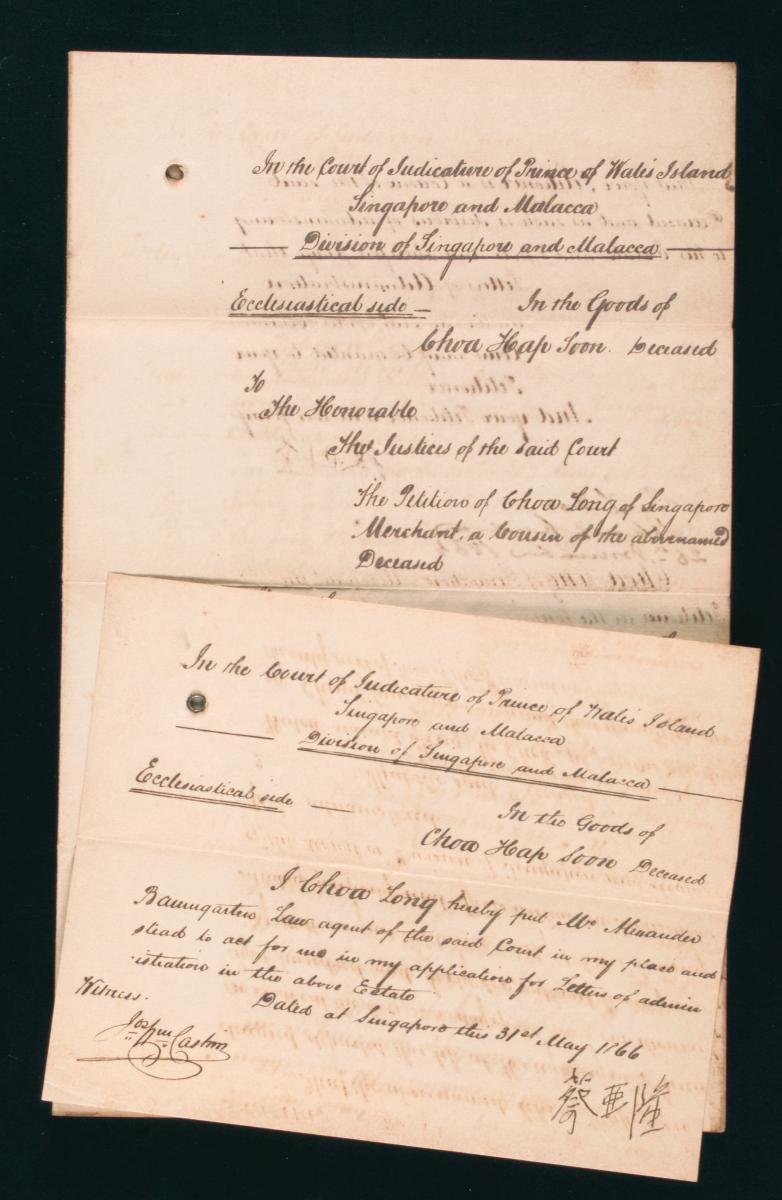 In the Court of Judicature of Prince of Wales Island
Singapore and Malacca
Division of Singapore and Malacca
Ecclesiastical side — In the Goods of
Choa Hap Soon. Deceased
To
The Honorable
The Justices of the said Court
The Petition of Choa Long of Singapore
Merchant, a Cousin of the abovenamed
Deceased
In the Court of Judicature of Prince of Wales Island
Singapore and Malacca
Division of Singapore and Malacca
Ecclesiastical side — In the Goods of
Choa Hap Soon Deceased
I Choa Long hereby put Mr Alexander
Baumgarten Law agent of the said Court in my place and
stead to act for me in my application for Letters of admin
istration in the above Estate
Dated at Singapore this 31st May 1866
Witness.
蔡亞隆